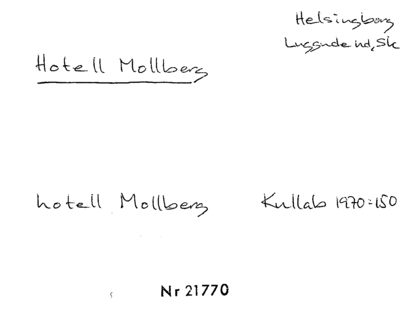 Helsingborg
Luggude hd, Sk
Hotell Mollberg
hotell Mollberg Kullab 1970:150
Nr 21770